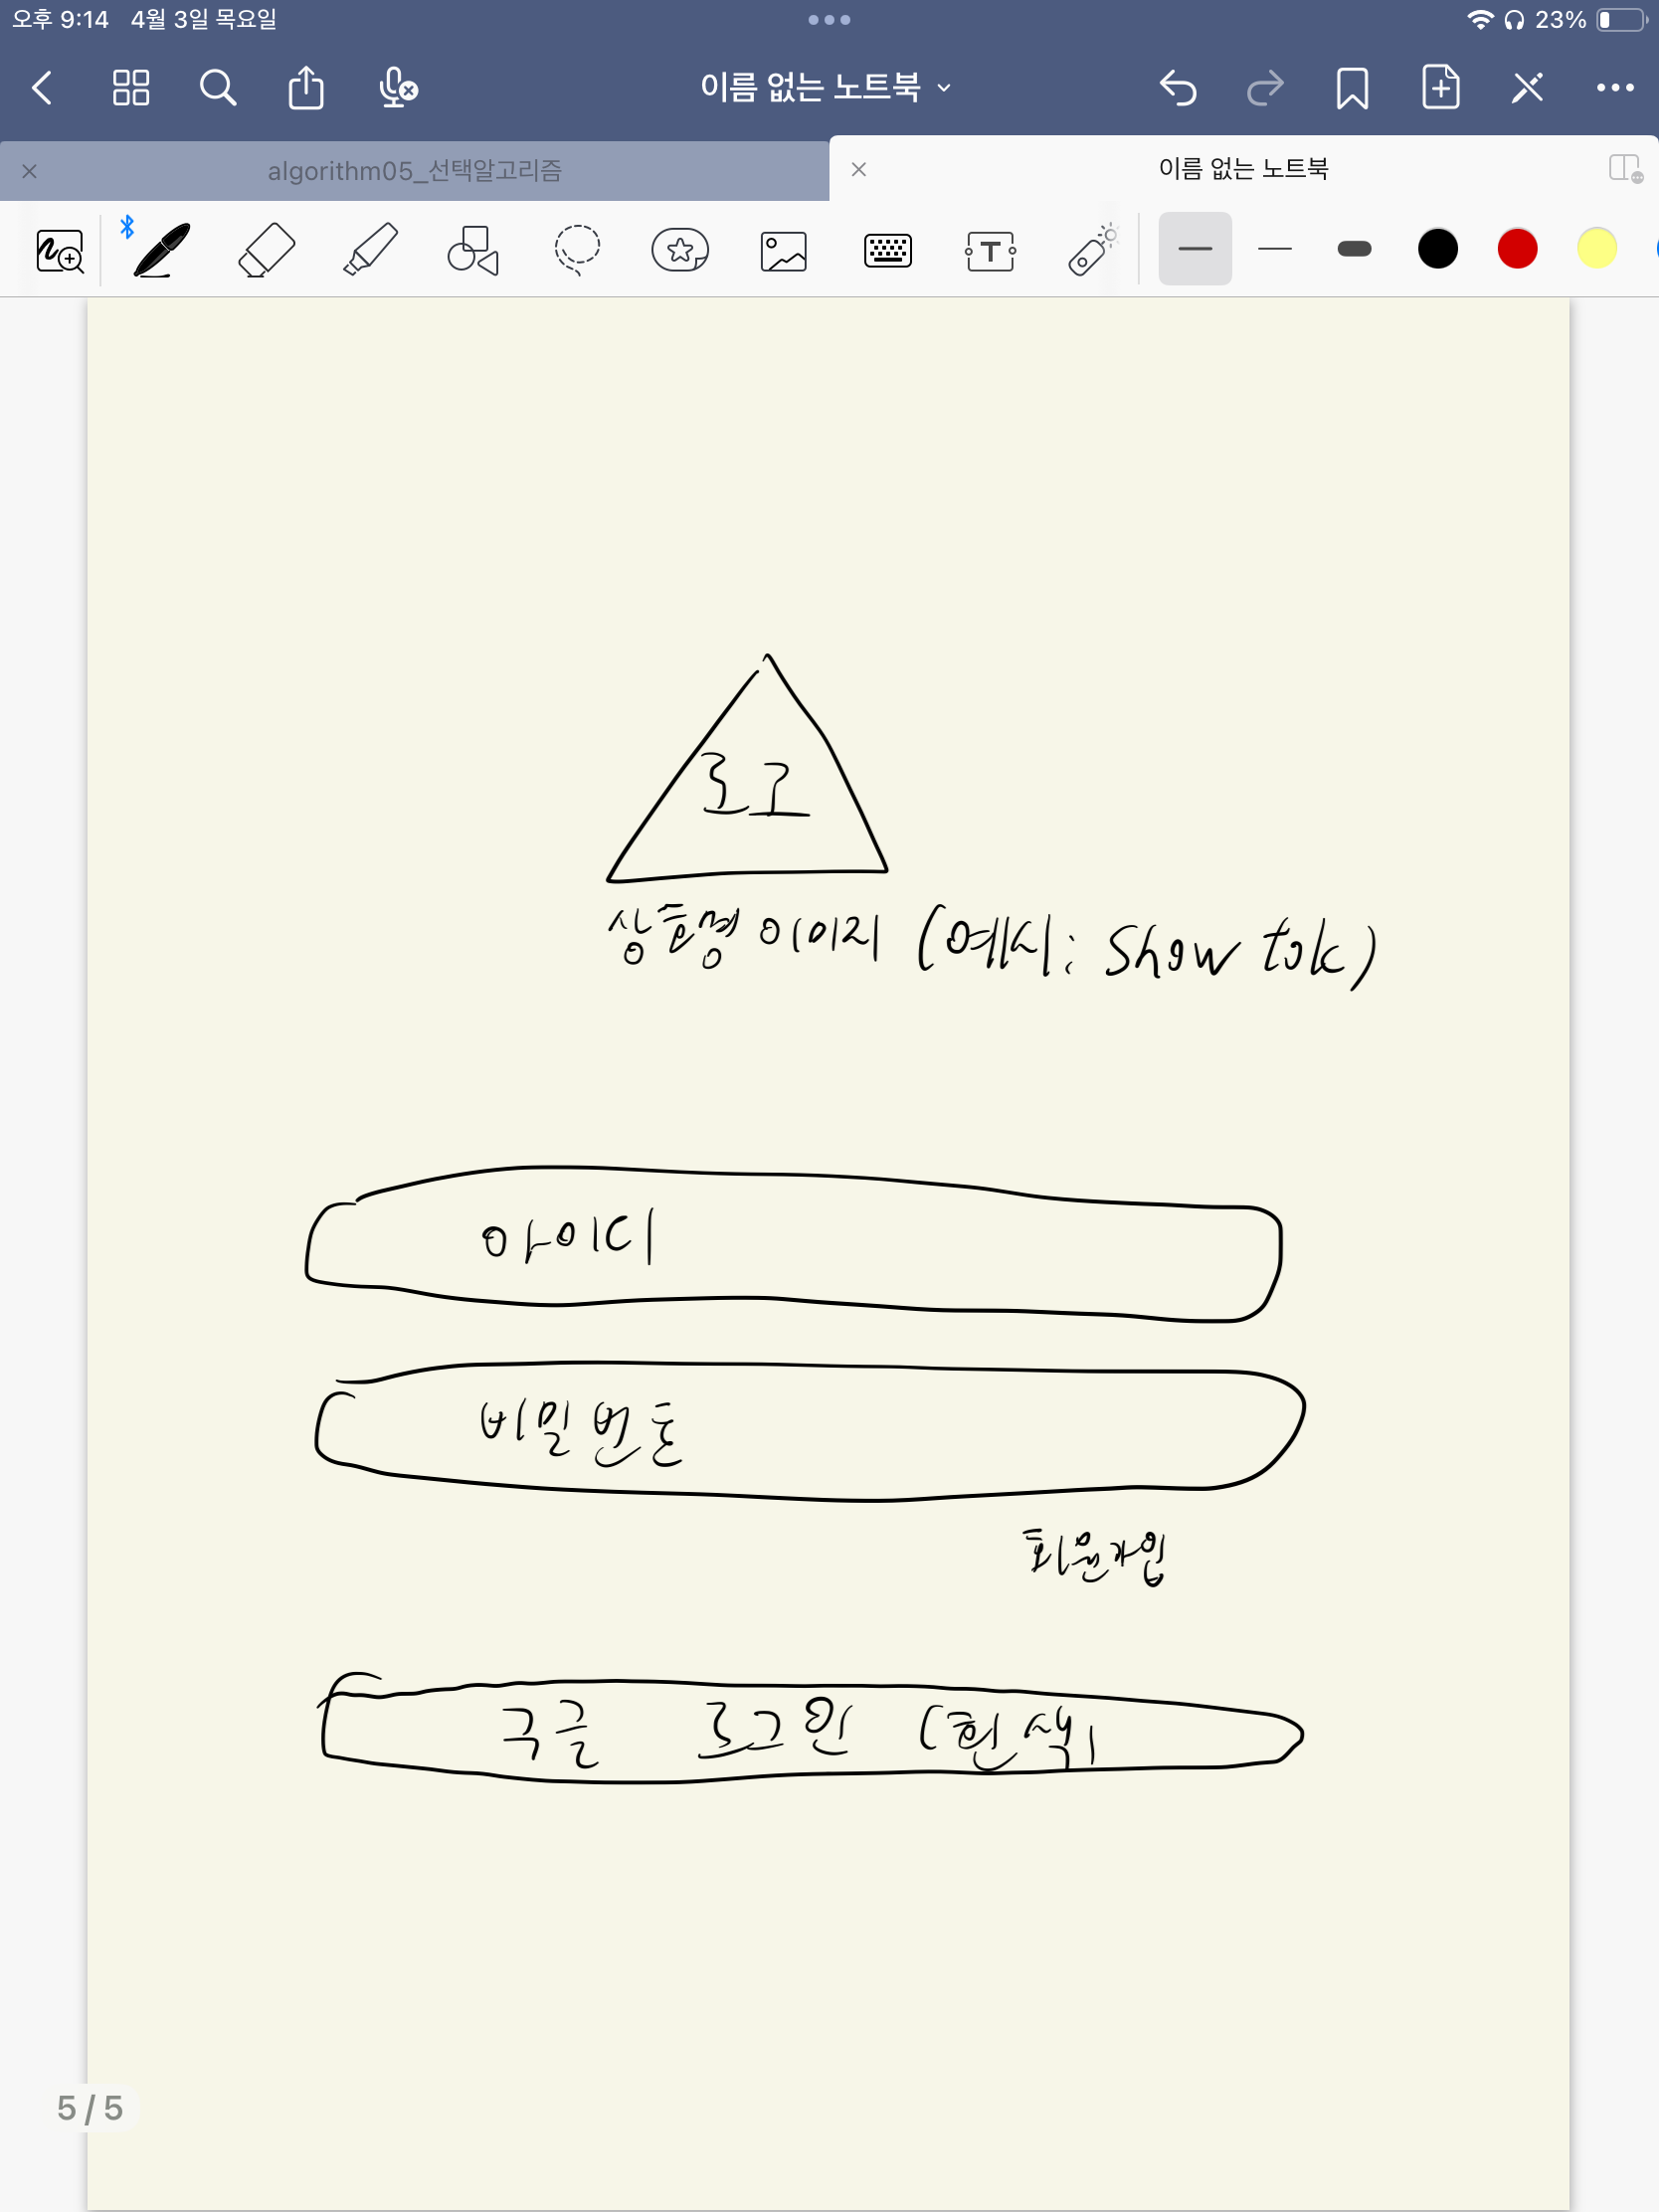 오후 9:14 4월 3일 목요일
23%
이름 없는 노트북
algorithm05_선택알고리즘
이름 없는 노트북
T
로고
상품명 이미지 (예시: Show tok)
아이디
비밀번호
회원가입
구글 로그인 (흰색)
5 / 5